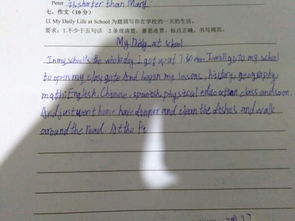 Peter is shorter than Mary.
七、作文(10分)
以 My Daily Life at School 为题描写你在学校的一天的生活。
要求:1.不少于五句话 2.条理清楚,意思连贯,标点正确,书写规范。
My Daily at school
In my school's the I get up at I will go to my school
to open my class And began my lessons, history, geography
math, English, Chinese, spanish, physical education class and soon.
And just went home have dinner and clean the dishes and walk
around the road. At the